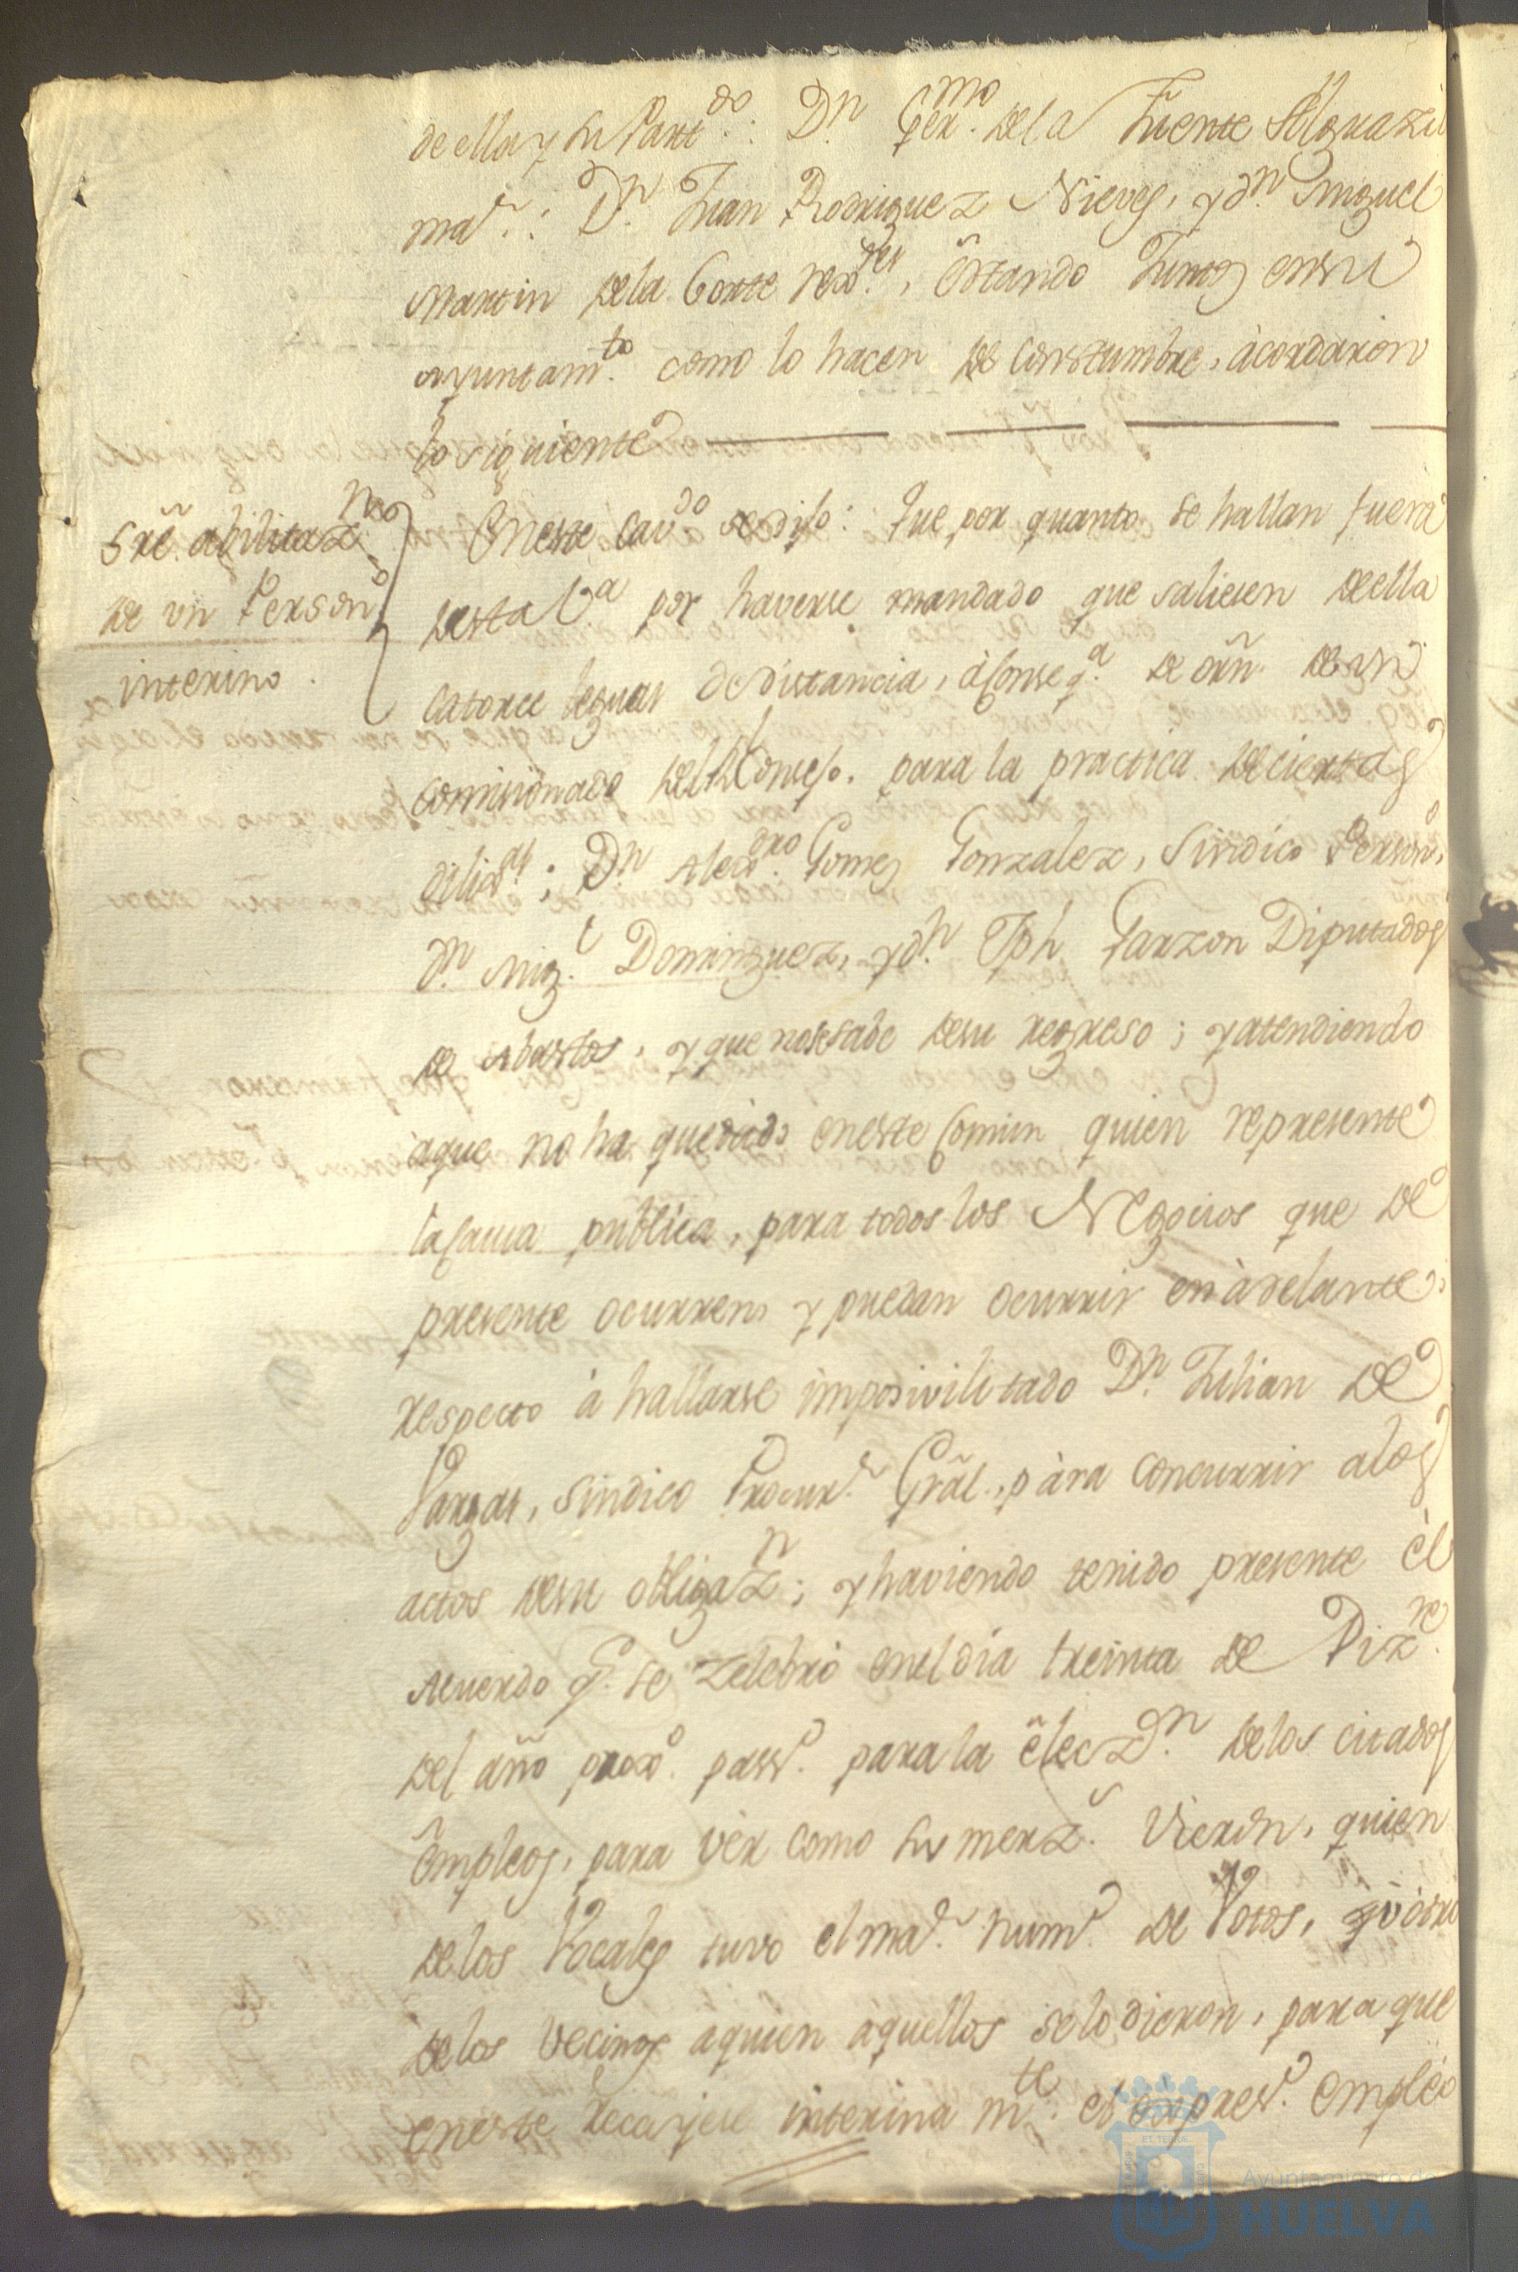 de ella y su Part.do: D.n Ger.mo de la Fuente Alguazil
ma.r: D.n Juan Rodriguez Nieves, y d.n Miguel
Martin de la Corte rexd.res, estando Juntos en su
ayuntam.to como lo hacen de constumbre, acordaron
lo siguiente
Sre. abilitaz.n
de un Person.o
interino.
En este Cav.do se dijo: Que por quanto se hallan fuera
desta V.a por haverse mandado que saliesen de ella
catorce leguas de distancia, à conseq.a de orñ. de un
comisionado del Consejo. para la practica de ciertas
dilig.as; D.n Alex.dro Gomez Gonzalez, Sindico Person.o
d.n Mig.l Dominguez, y d.n Jph Garzon Diputados
de Abastos, y que no se sabe de su regreso; y atendiendo
àque no ha quedado en este Comun quien represente
la causa publica, para todos los Negocios que de
presente ocurren, y puedan ocurrir en àdelante:
respecto à hallarse imposivilitado D.n Julian de
Vargas, Sindico Procur.r Grâl., para concurrir a los
actos de su obligaz.n; y haviendo tenido presente èl
Acuerdo q.e se zelebrò en el dia treinta de Diz.re
del año proxo. pass.o para la elecz.on de los citados
Empleos, para vèr como sus merz.s vieron, quien
de los Vocales tuvo el ma.r num.o de Votos, ù otro
de los Vecinos aquien aquellos se lo dieron, para que
en este recayese interinam.te el expres.o Empleo
Ayuntamiento de
HUELVA